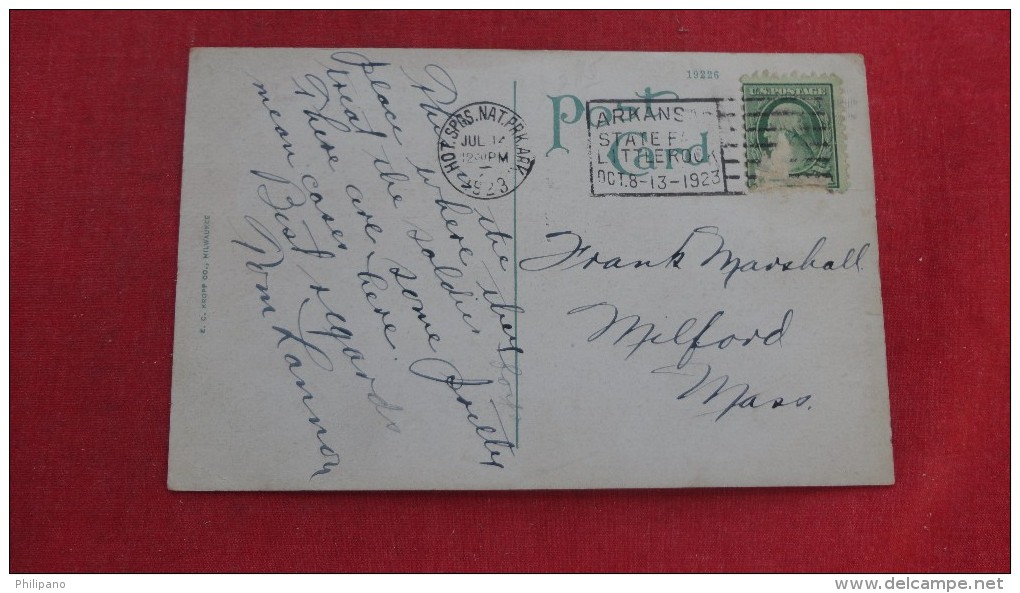 19226
Post
Card
U.S. POSTAGE
HOT SPGS. NAT. PRK. ARK.
JUL 14
12 PM
1923
ARKANSAS
STATE FA
LITTLE ROCK
OCT. 8-13-1923
This is where the they
place the soldiers
treat the some pretty
There are here.
mean cases
Best regards
Tom Lannon
Frank Marshall
Milford
Mass.
E. C. KROPP CO., MILWAUKEE
Philipano
www.delcampe.net